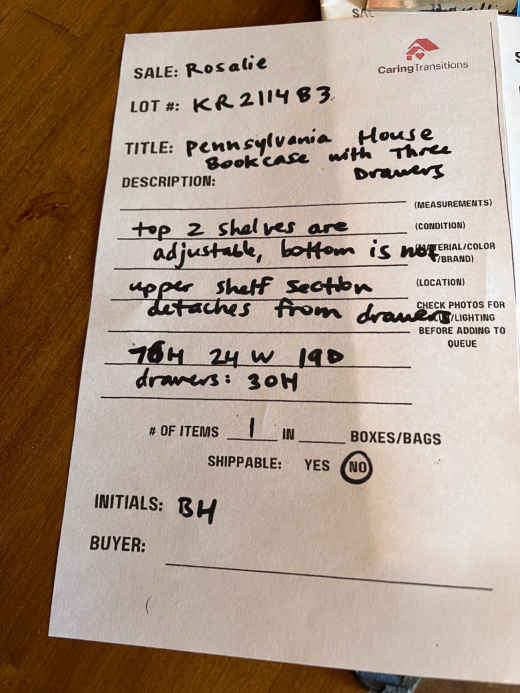 SALE: Rosalie
CaringTransitions
LOT #: KR211483
TITLE: Pennsylvania House
Bookcase with Three
Drawers
DESCRIPTION:
(MEASUREMENTS)
top 2 shelves are
(CONDITION)
adjustable, bottom is not
/BRAND)
upper shelf section
(LOCATION)
detaches from drawers
CHECK PHOTOS FOR
/LIGHTING
BEFORE ADDING TO
QUEUE
76H 24W 19D
drawers: 30H
# OF ITEMS 1 IN BOXES/BAGS
SHIPPABLE: YES NO
INITIALS: BH
BUYER: